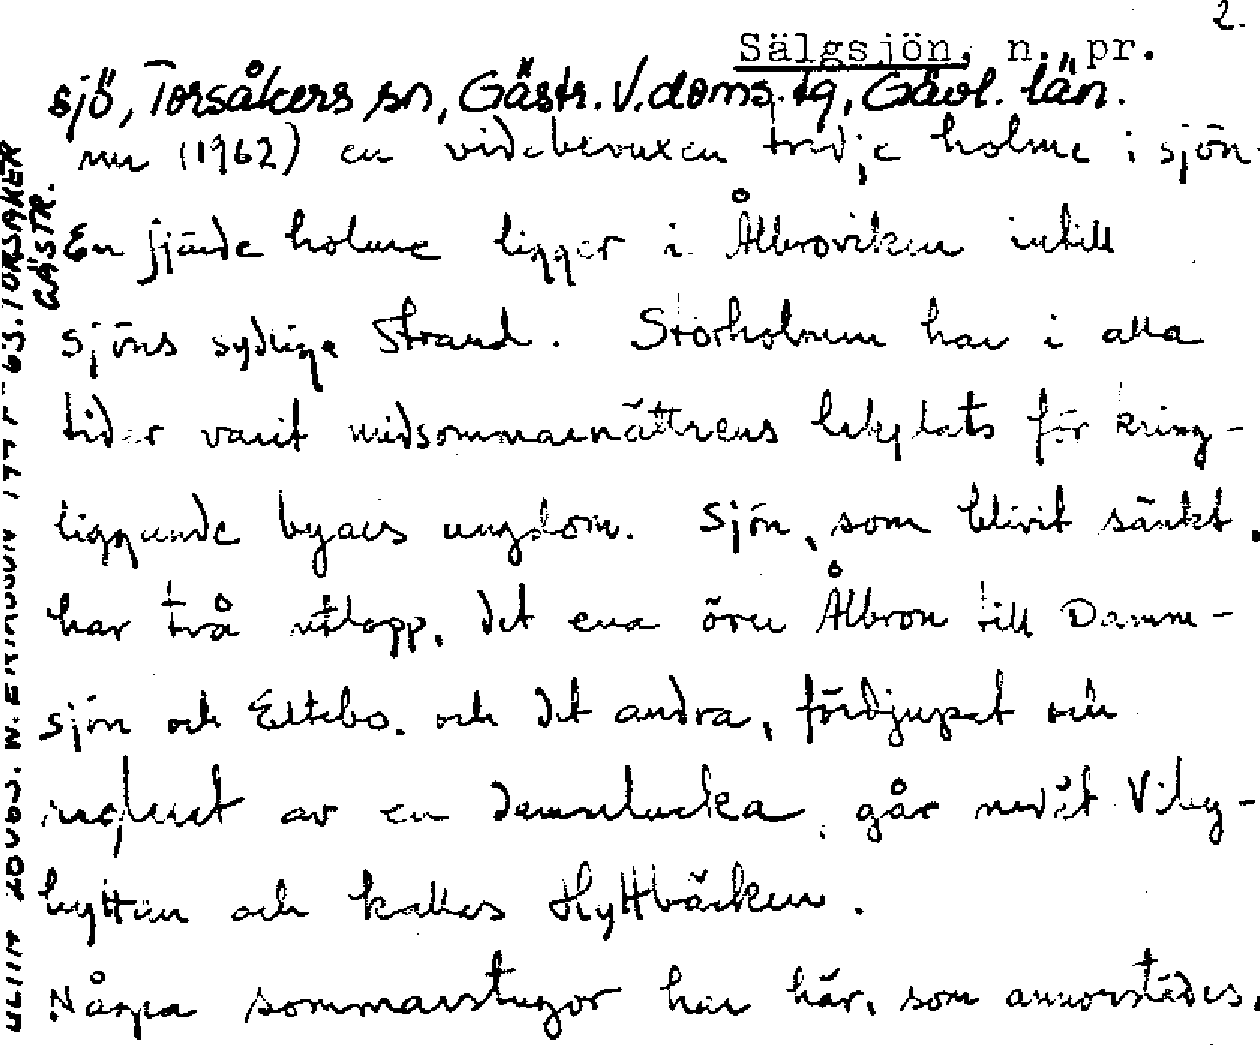 2.
Sälgsjön, n. pr.
sjö, Torsåkers sn, Gästr. V. doms. tg, Gävl. län.
nu (1962) en videbevuxen tredje holme i sjön.
En fjärde holme ligger i Ålbroviken intill
sjöns sydliga strand. Storholmen har i alla
tider varit midsommarnättrens lekplats för kring-
liggande byars ungdom. Sjön, som blivit sänkt,
har två utlopp, det ena över Ålbron till Damm-
sjön och Eltebo. och det andra, fördjupat och
reglerat av en dammlucka, går nedåt Viby-
hyttan och kallas Hyttbäcken.
Några sommarstugor har här, som annorstädes,
TORSÅKER
GÄSTR.